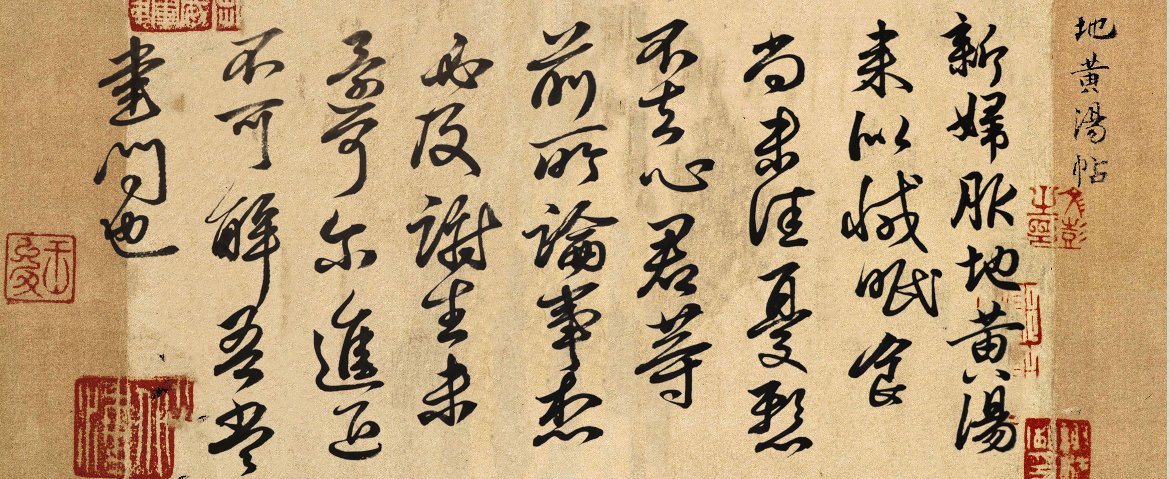 地黄湯帖
新婦服地黄湯
来似減眠食
尚未佳憂懸
不去心君等
前所論事想
必及謝生未
還何尔進退
不可解吾當
書問也